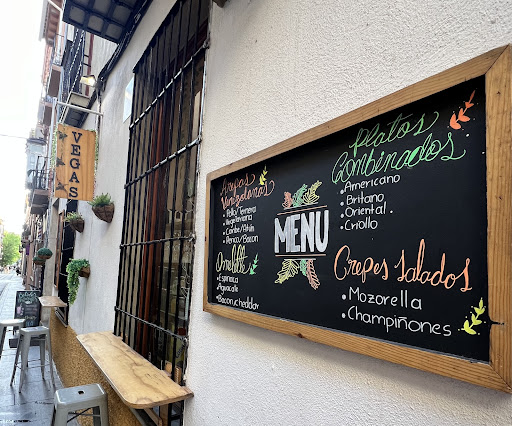 VEGAS
Arepas
Venezolanas
• Pollo/Ternera
• Vegetariana
• Carne/Atún
• Pernil/Bacon
Omelette
• Espinaca
• Aguacate
• Bacon y cheddar
MENU
Platos
Combinados
• Americano
• Britano
• Oriental.
• Criollo
Crepes Salados
• Mozarella
• Champiñones